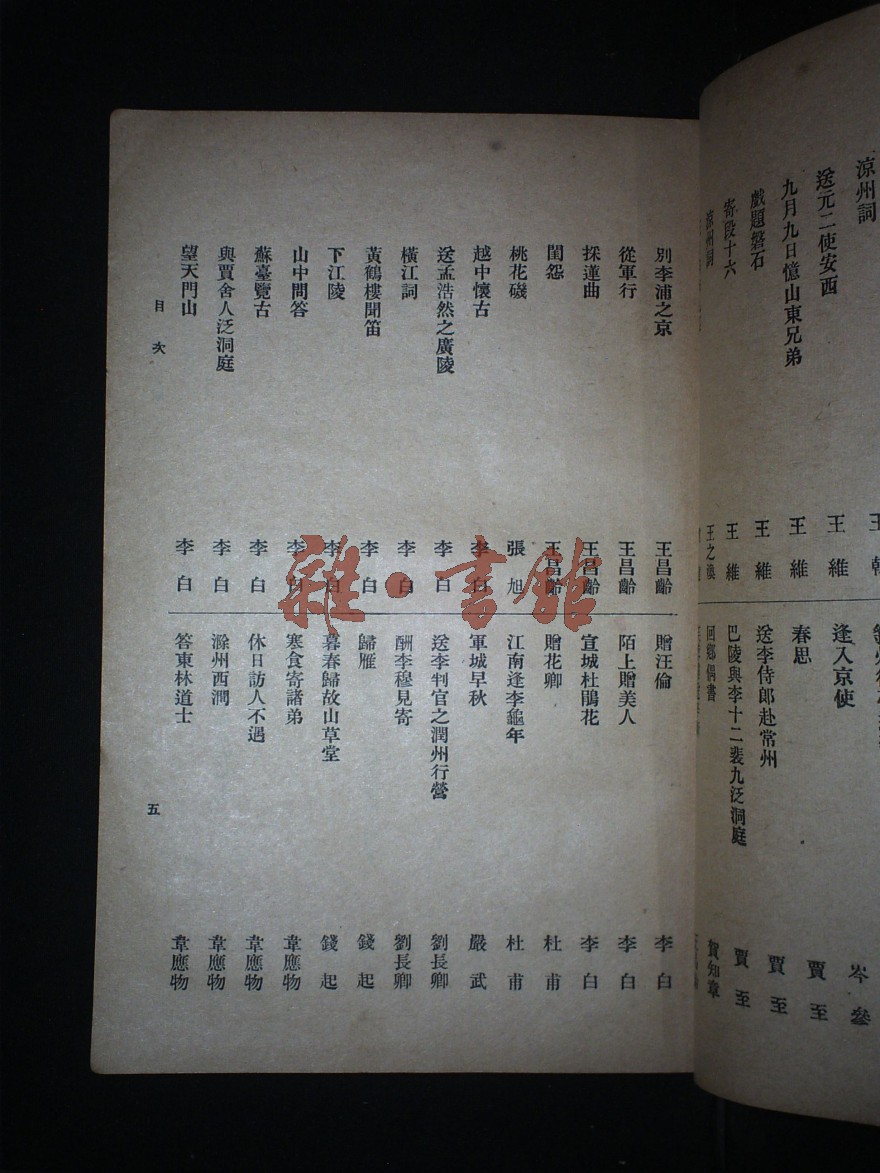 涼州詞
王
送元二使安西
王維
九月九日憶山東兄弟
王維
戲題磐石
王維
寄段十六
王維
涼州詞
王之渙
岑參
逢入京使
春思
賈至
送李侍郎赴常州
賈至
巴陵與李十二裴九泛洞庭
賈至
回鄉偶書
賀知章
別李浦之京
王昌齡
從軍行
王昌齡
採蓮曲
王昌齡
閨怨
王昌齡
桃花磯
張旭
越中懷古
李白
送孟浩然之廣陵
李白
橫江詞
李白
黃鶴樓聞笛
李白
下江陵
李白
山中問答
李白
蘇臺覽古
李白
與賈舍人泛洞庭
李白
望天門山
李白
贈汪倫
李白
陌上贈美人
李白
宣城杜鵑花
李白
贈花卿
杜甫
江南逢李龜年
杜甫
軍城早秋
嚴武
送李判官之潤州行營
劉長卿
酬李穆見寄
劉長卿
歸雁
錢起
暮春歸故山草堂
錢起
寒食寄諸弟
韋應物
休日訪人不遇
韋應物
滁州西澗
韋應物
答東林道士
韋應物
目次
五
雜·書館